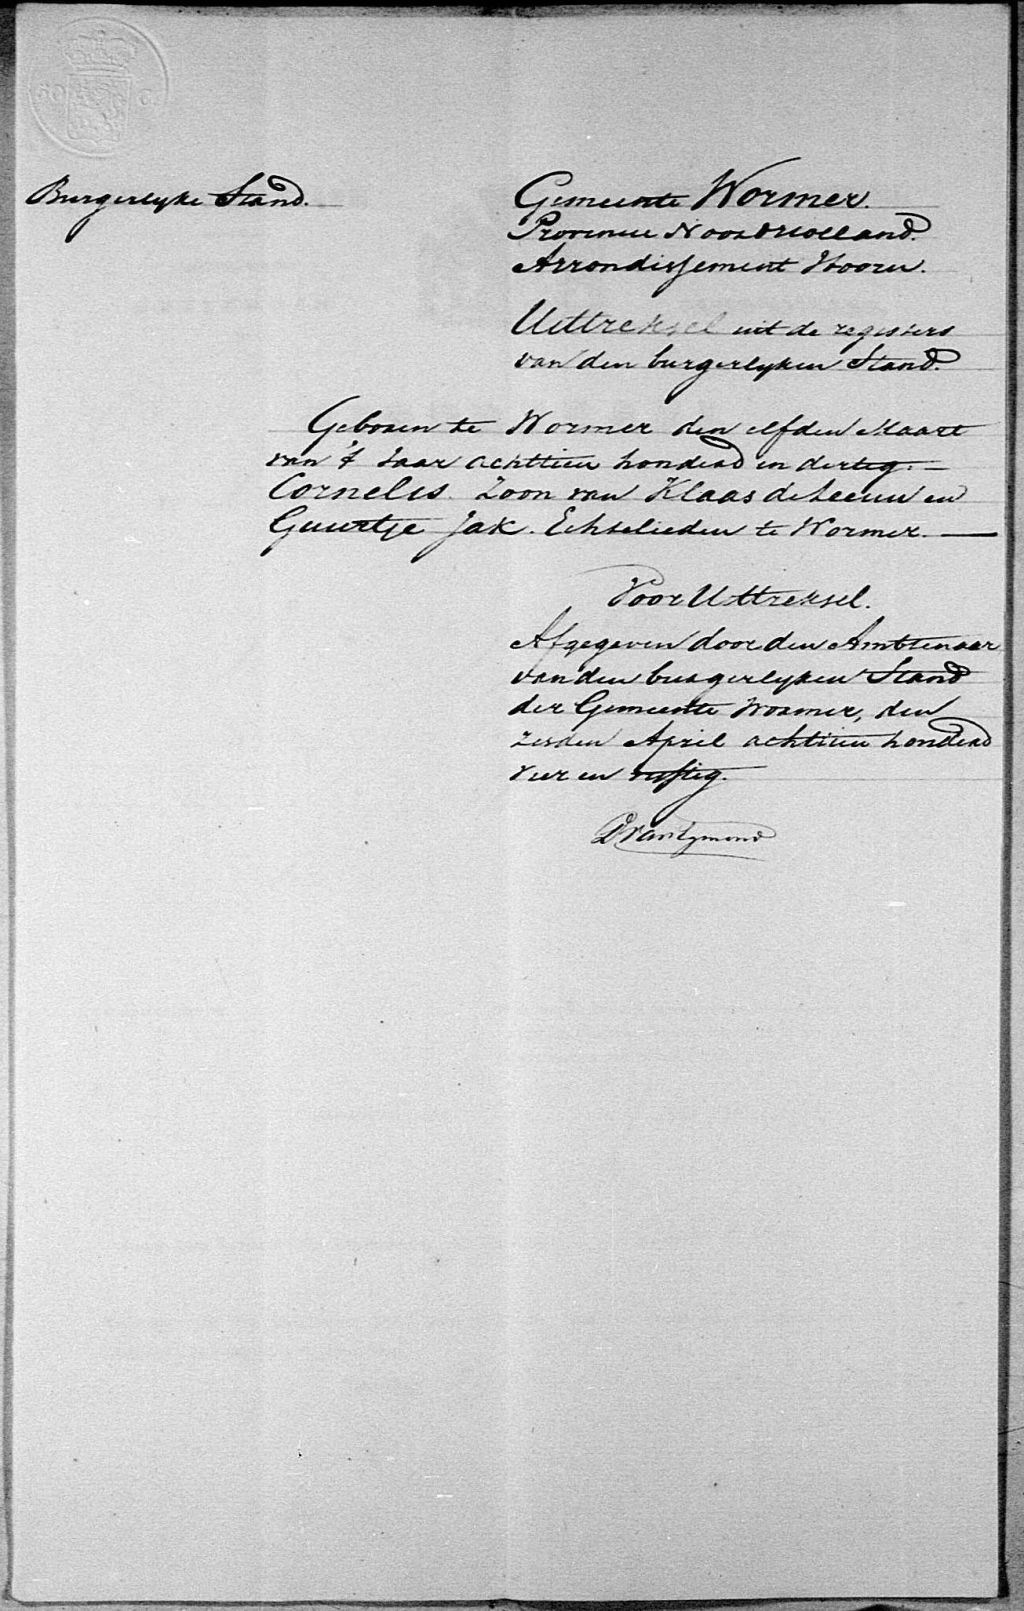 50 C.
Burgerlyke Stand.
Gemeente Wormer.
Provincie Noordholland.
Arrondissement Hoorn.
Uittreksel uit de registers
van den burgerlyken Stand.
Geboren te Wormer den elfden Maart
van 't Jaar achttien honderd en dertig.
Cornelis. Zoon van Klaas de Leeuw en
Guurtje Jak. Echtelieden te Wormer.
Voor Uittreksel.
Afgegeven door den Ambtenaar
van den burgerlyken Stand
der Gemeente Wormer, den
zesden April achttien honderd
vier en vyftig.